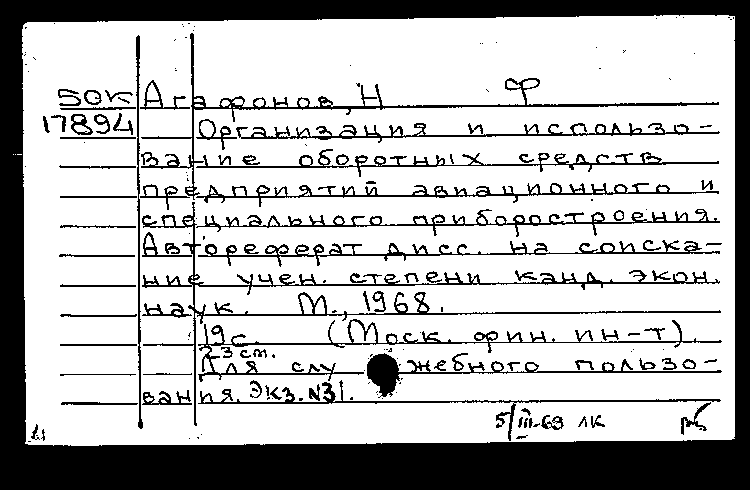 50К Агафонов, Н Ф
17894 Организация и использо-
вание оборотных средств
предприятий авиационного и
специального приборостроения.
Автореферат дисс. на соиска-
ние учен. степени канд. экон.
наук. М., 1968.
19с. (Моск. фин. ин-т).
23 cm.
Для служебного пользо-
вания. Экз. №31.
5/III-69 ЛК